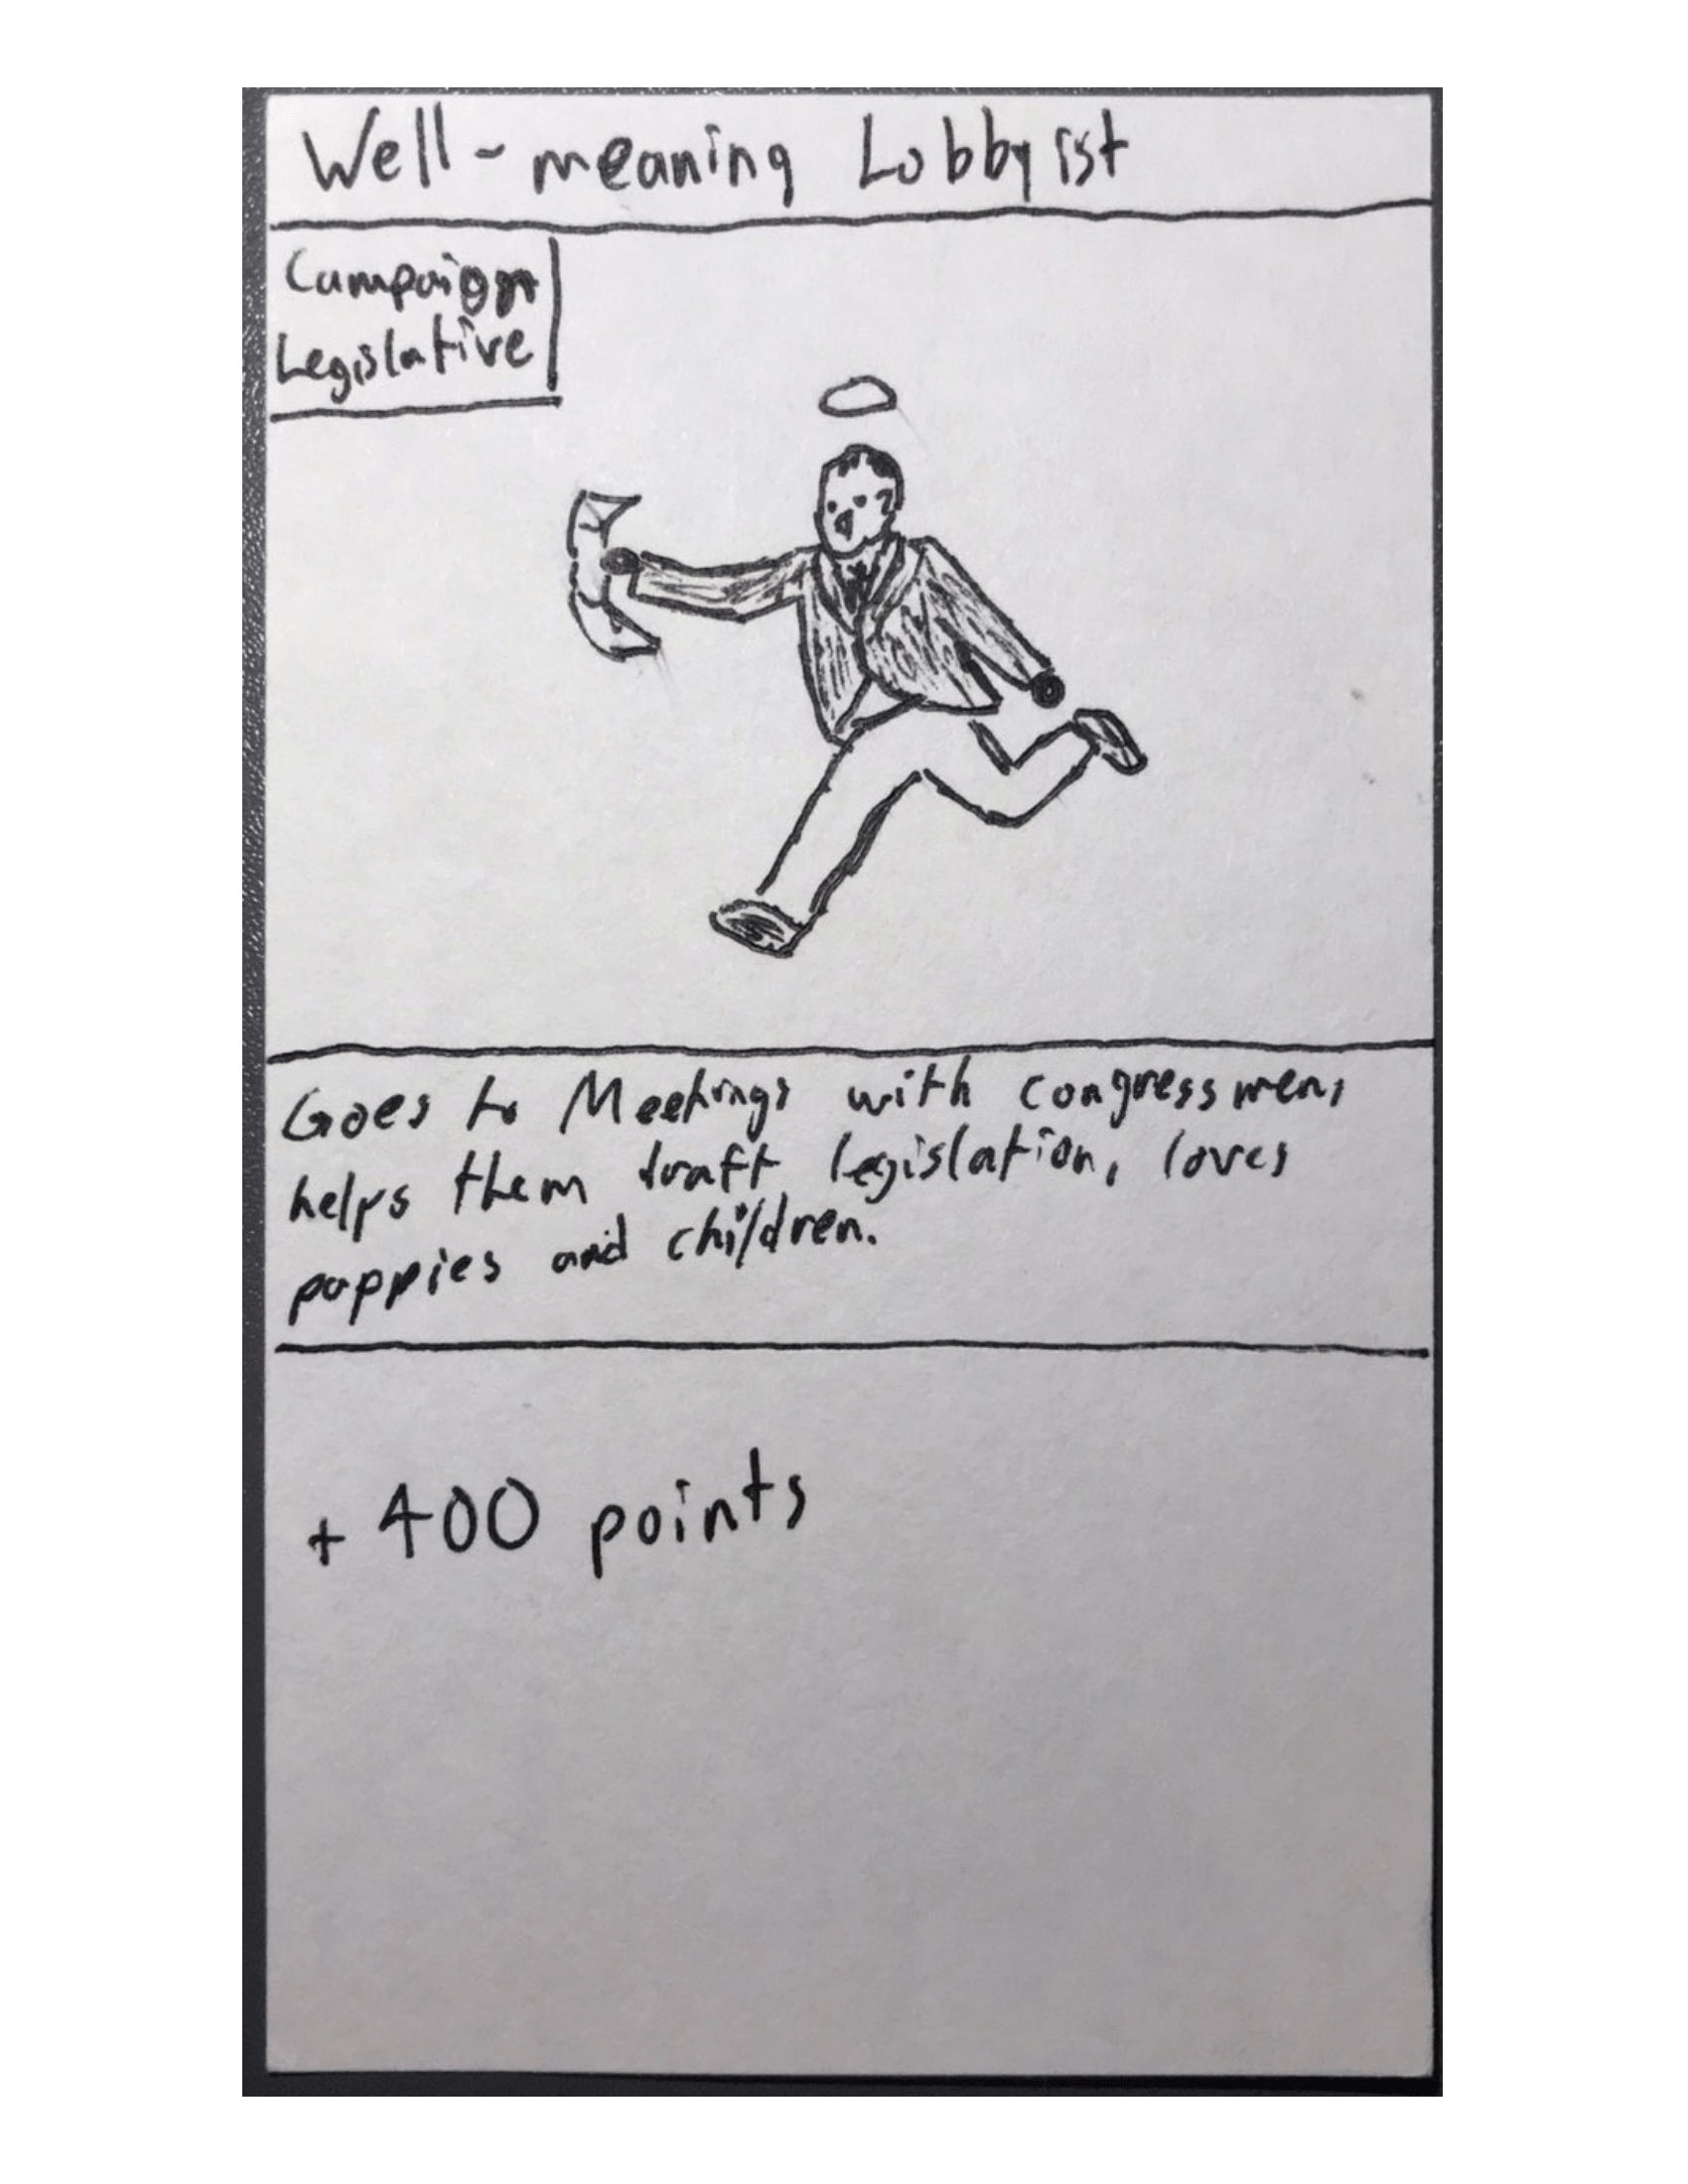 Well-meaning Lobbyist
Campaign
Legislative
Goes to Meetings with congressmen,
helps them draft legislation, loves
puppies and children.
+ 400 points